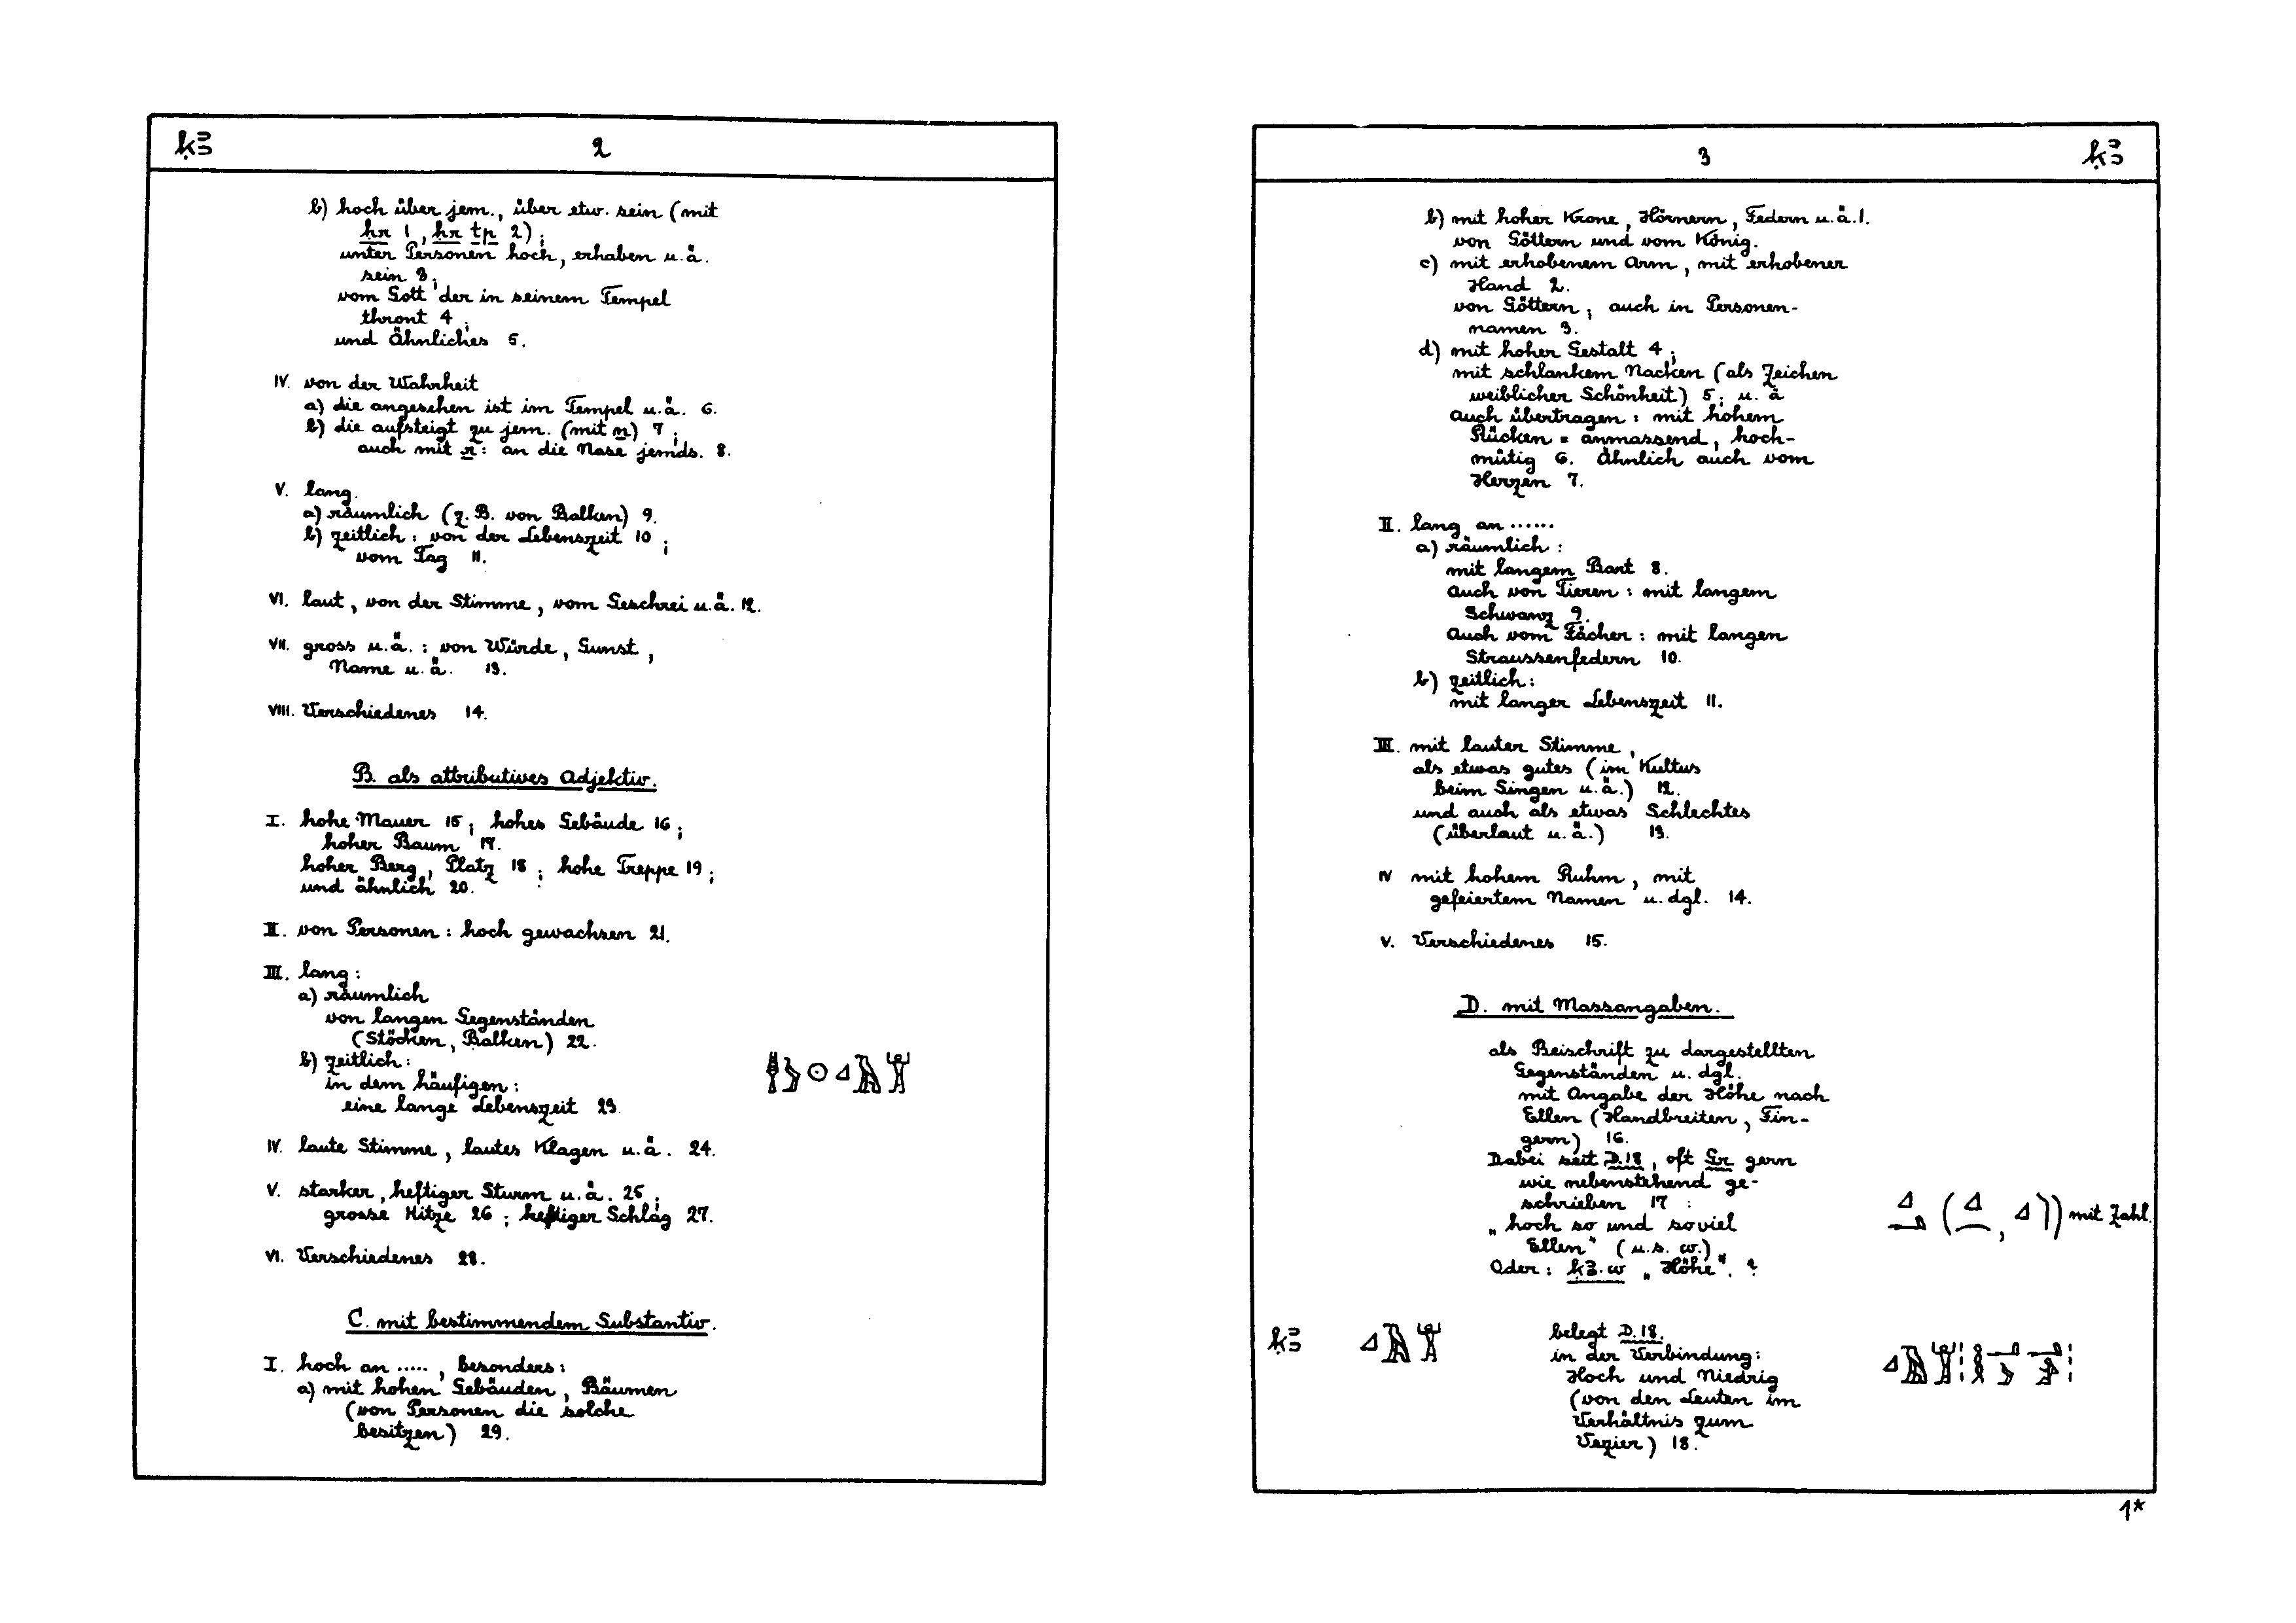 ḳꜣ 2
b) hoch über jem., über etw. sein (mit
ḥr 1, ḥr tp 2);
unter Personen hoch, erhaben u.ä.
sein 3;
vom Gott der in seinem Tempel
thront 4;
und Ähnliches 5.
IV. von der Wahrheit
a) die angesehen ist im Tempel u.ä. 6.
b) die aufsteigt zu jem. (mit n) 7;
auch mit r: an die Nase jemds. 8.
V. lang.
a) räumlich (z.B. von Balken) 9.
b) zeitlich: von der Lebenszeit 10;
vom Tag 11.
VI. laut, von der Stimme, vom Geschrei u.ä. 12.
VII. gross u.ä.: von Würde, Gunst,
Name u.ä. 13.
VIII. Verschiedenes 14.
B. als attributives Adjektiv.
I. hohe Mauer 15; hohes Gebäude 16;
hoher Baum 17.
hoher Berg, Platz 18; hohe Treppe 19;
und ähnlich 20.
II. von Personen: hoch gewachsen 21.
III. lang:
a) räumlich
von langen Gegenständen
(Stöcken, Balken) 22.
b) zeitlich:
in dem häufigen:
eine lange Lebenszeit 23.
IV. laute Stimme, lautes Klagen u.ä. 24.
V. starker, heftiger Sturm u.ä. 25;
grosse Hitze 26; heftiger Schlag 27.
VI. Verschiedenes 28.
C. mit bestimmendem Substantiv.
I. hoch an ....., besonders:
a) mit hohen Gebäuden, Bäumen
(von Personen die solche
besitzen) 29.
3 ḳꜣ
b) mit hoher Krone, Hörnern, Federn u.ä. 1.
von Göttern und vom König.
c) mit erhobenem Arm, mit erhobener
Hand 2.
von Göttern; auch in Personen-
namen 3.
d) mit hoher Gestalt 4;
mit schlankem Nacken (als Zeichen
weiblicher Schönheit) 5; u. ä
auch übertragen: mit hohem
Rücken = anmassend, hoch-
mütig 6. Ähnlich auch vom
Herzen 7.
II. lang an ......
a) räumlich:
mit langem Bart 8.
Auch von Tieren: mit langem
Schwanz 9.
Auch vom Fächer: mit langen
Straussenfedern 10.
b) zeitlich:
mit langer Lebenszeit 11.
III. mit lauter Stimme,
als etwas gutes (im Kultus
beim Singen u.ä.) 12.
und auch als etwas Schlechtes
(überlaut u.ä.) 13.
IV mit hohem Ruhm, mit
gefeiertem Namen u. dgl. 14.
V. Verschiedenes 15.
D. mit Massangaben.
als Beischrift zu dargestellten
Gegenständen u. dgl.
mit Angabe der Höhe nach
Ellen (Handbreiten, Fin-
gern) 16.
Dabei seit D.18, oft Gr. gern
wie nebenstehend ge-
schrieben 17:
„hoch so und soviel
Ellen" (u.s.w.)
Oder: ḳꜣ.w „Höhe". ?
mit Zahl.
ḳꜣ
belegt D.18.
in der Verbindung:
Hoch und Niedrig
(von den Leuten im
Verhältnis zum
Vezier) 18.
1*